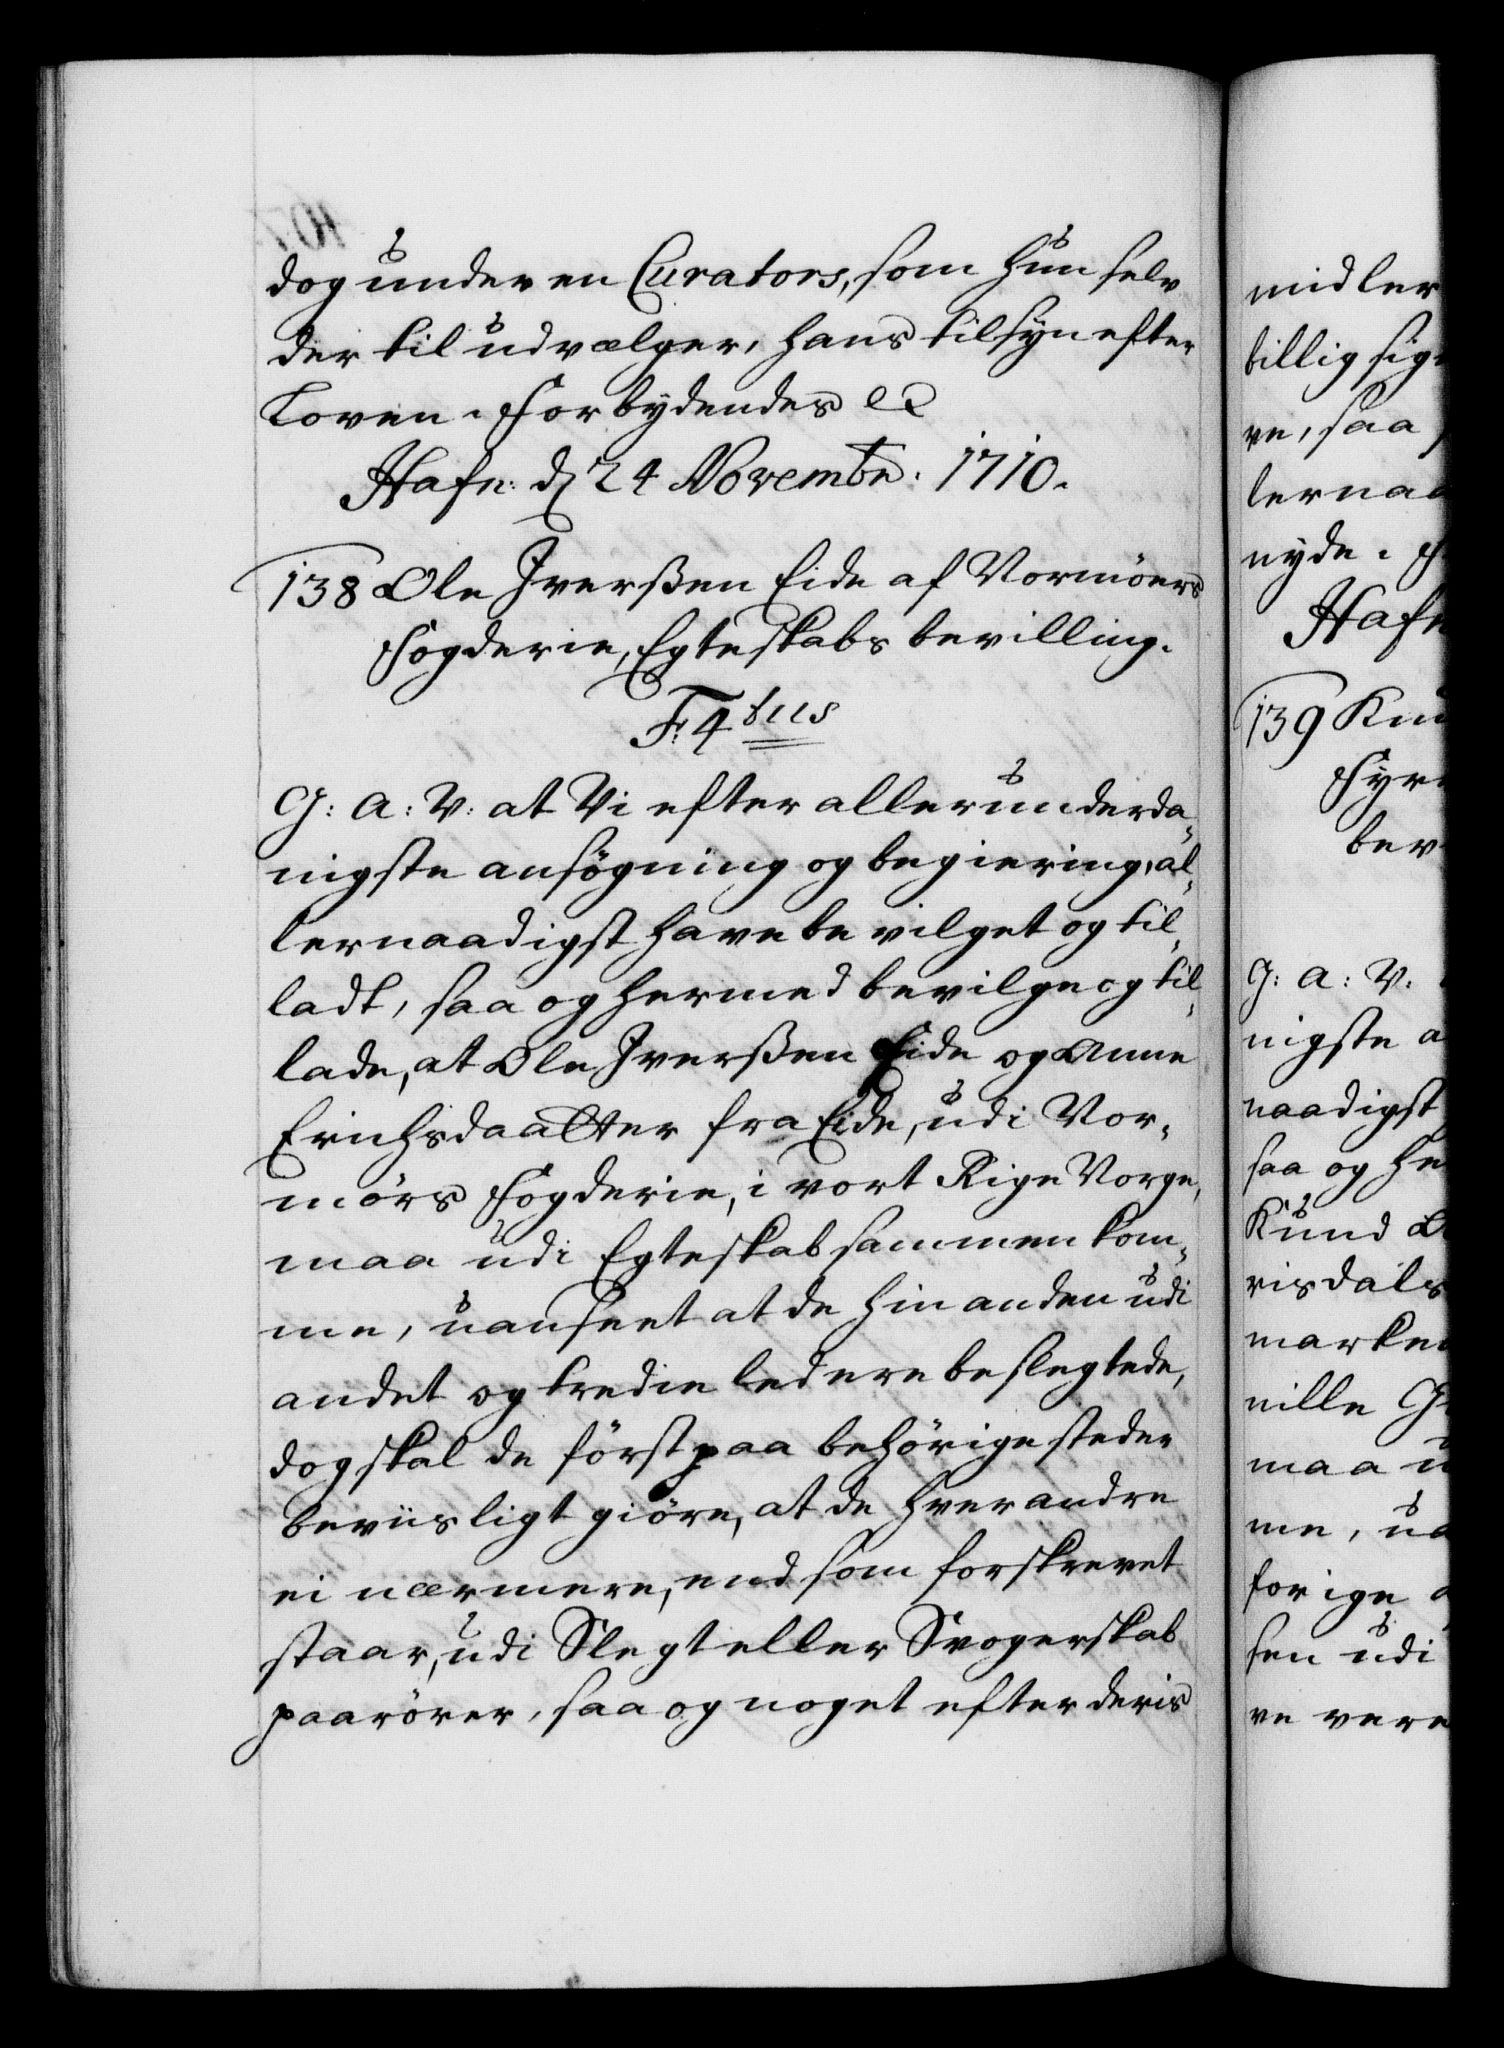 dog under en Curators, som hun selv
der til udvælger, hans tilsyn efter
Loven. Forbydendes etc
Hafn: d 24 Novembr: 1710.
138 Ole Iverßen Eide af Normöers
Fogderie, Egteskabs bevilling.
F: 4tus
G: A: V: at Vi efter allerunderda-
nigste ansögning og begiering, al-
lernaadigst have bevilget og til-
ladt, saa og hermed bevilge og til-
lade, at Ole Iverßen Eide og Anne
Erichsdaatter fra Eide, udi Nor-
mörs Fogderie, i vort Rige Norge,
maa udi Egteskab sammen kom-
me, uanseet at de hinanden udi
andet og tredie leed ere beslegtede,
dog skal de först paa behörige steder
beviisligt giöre, at de hverandre
ei nærmere, end som forskrevet
staar, udi Slegt eller Svogerskab
paarörer, saa og noget efter deris
midler
tillig sig
ve, saa
lernaa
nyde.
Hafn
139 Knu
Fyr
bev
G: A: V:
nigste a
naadigst
saa og he
Knud
risdals
marken
nille G
maa u
me, ua
forige
sen udi
ve vere